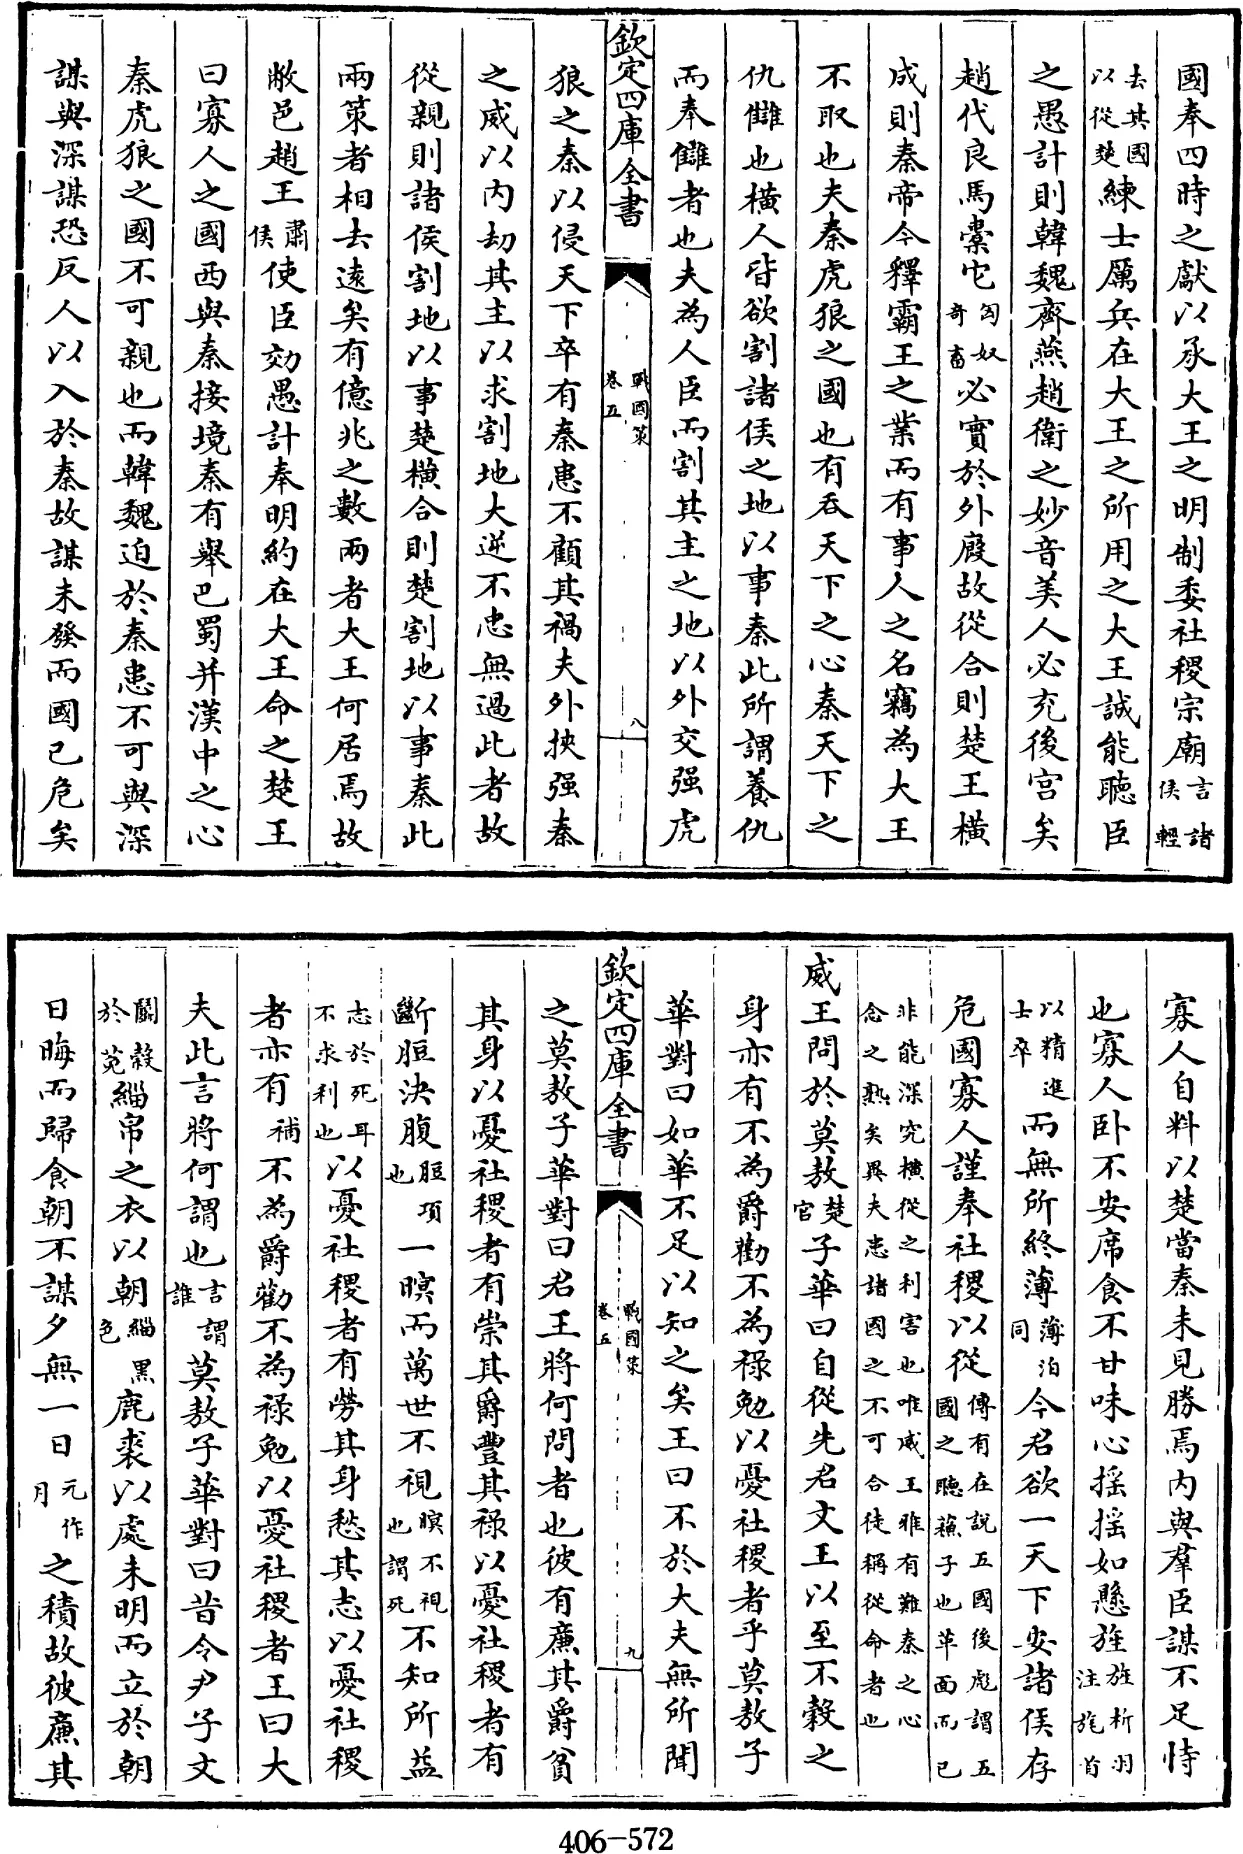 國奉四時之獻以承大王之明制委社稷宗廟言諸侯輕
去其國以從楚練士厲兵在大王之所用之大王誠能聽臣
之愚計則韓魏齊燕趙衛之妙音美人必充後宮矣
趙代良馬橐它匈奴奇畜必實於外廐故從合則楚王橫
成則秦帝今釋霸王之業而有事人之名竊為大王
不取也夫秦虎狼之國也有吞天下之心秦天下之
仇讎也橫人皆欲割諸侯之地以事秦此所謂養仇
而奉讎者也夫為人臣而割其主之地以外交强虎
欽定四庫全書 戰國策卷五 八
狼之秦以侵天下卒有秦患不顧其禍夫外挾强秦
之威以內劫其主以求割地大逆不忠無過此者故
從親則諸侯割地以事楚橫合則楚割地以事秦此
兩策者相去遠矣有億兆之數兩者大王何居焉故
敝邑趙王肅侯使臣効愚計奉明約在大王命之楚王
曰寡人之國西與秦接境秦有舉巴蜀并漢中之心
秦虎狼之國不可親也而韓魏迫於秦患不可與深
謀與深謀恐反人以入於秦故謀未發而國已危矣
寡人自料以楚當秦未見勝焉內與羣臣謀不足恃
也寡人臥不安席食不甘味心搖搖如懸旌旌析羽注旄首
以精進士卒而無所終薄薄泊同今君欲一天下安諸侯存
危國寡人謹奉社稷以從傳有在說五國後彪謂五國之聽蘇子也革面而已
非能深究橫從之利害也唯威王雅有難秦之心念之熟矣異夫患諸國之不可合徒稱從命者也
威王問於莫敖楚官子華曰自從先君文王以至不穀之
身亦有不為爵勸不為祿勉以憂社稷者乎莫敖子
華對曰如華不足以知之矣王曰不於大夫無所聞
欽定四庫全書 戰國策卷五 九
之莫敖子華對曰君王將何問者也彼有廉其爵貧
其身以憂社稷者有崇其爵豐其祿以憂社稷者有
斷脰決腹脰項也一瞑而萬世不視瞑不視也謂死不知所益
志於死耳不求利也以憂社稷者有勞其身愁其志以憂社稷
者亦有補不為爵勸不為祿勉以憂社稷者王曰大
夫此言將何謂也言謂誰莫敖子華對曰昔令尹子文
鬭穀於菟緇帛之衣以朝緇黑色鹿裘以處未明而立於朝
日晦而歸食朝不謀夕無一日元作月之積故彼廉其
406-572